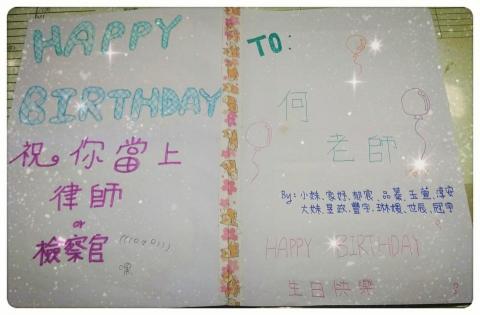 HAPPY
BIRTHDAY
祝。你當上
律師
or
檢察官
TO:
何
老師
By: 小妹、家妤、郁宸、品蓁、玉萱、淳安
大妹、昱政、豐宇、琳媛、世辰、冠宇
HAPPY BIRTHDAY
生日快樂